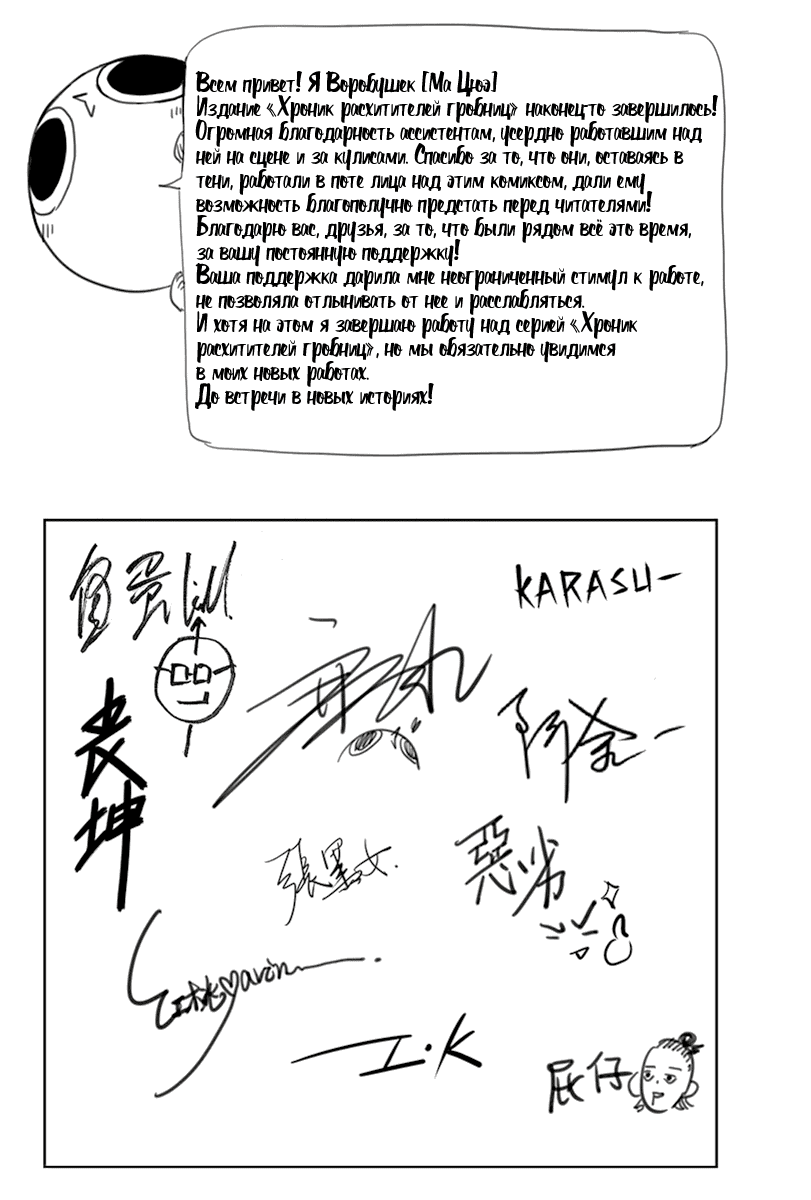 Всем привет! Я Воробушек [Ма Цюэ]
Издание «Хроник расхитителей гробниц» наконец-то завершилось!
Огромная благодарность ассистентам, усердно работавшим над
ней на сцене и за кулисами. Спасибо за то, что они, оставаясь в
тени, работали в поте лица над этим комиксом, дали ему
возможность благополучно предстать перед читателями!
Благодарю вас, друзья, за то, что были рядом всё это время,
за вашу постоянную поддержку!
Ваша поддержка дарила мне неограниченный стимул к работе,
не позволяла отлынивать от нее и расслабляться.
И хотя на этом я завершаю работу над серией «Хроник
расхитителей гробниц», но мы обязательно увидимся
в моих новых работах.
До встречи в новых историях!
KARASU
丧坤
惡劣
I·K
屁仔